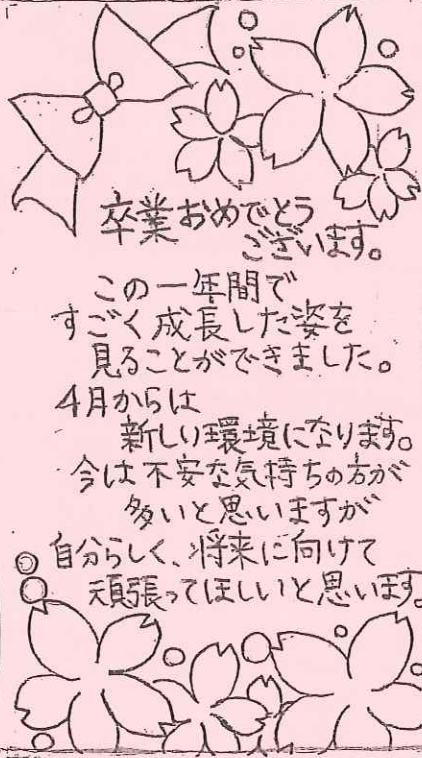 卒業おめでとう
ございます。
この一年間で
すごく成長した姿を
見ることができました。
4月からは
新しい環境になります。
今は不安な気持ちの方が
多いと思いますが
自分らしく、将来に向けて
頑張ってほしいと思います。